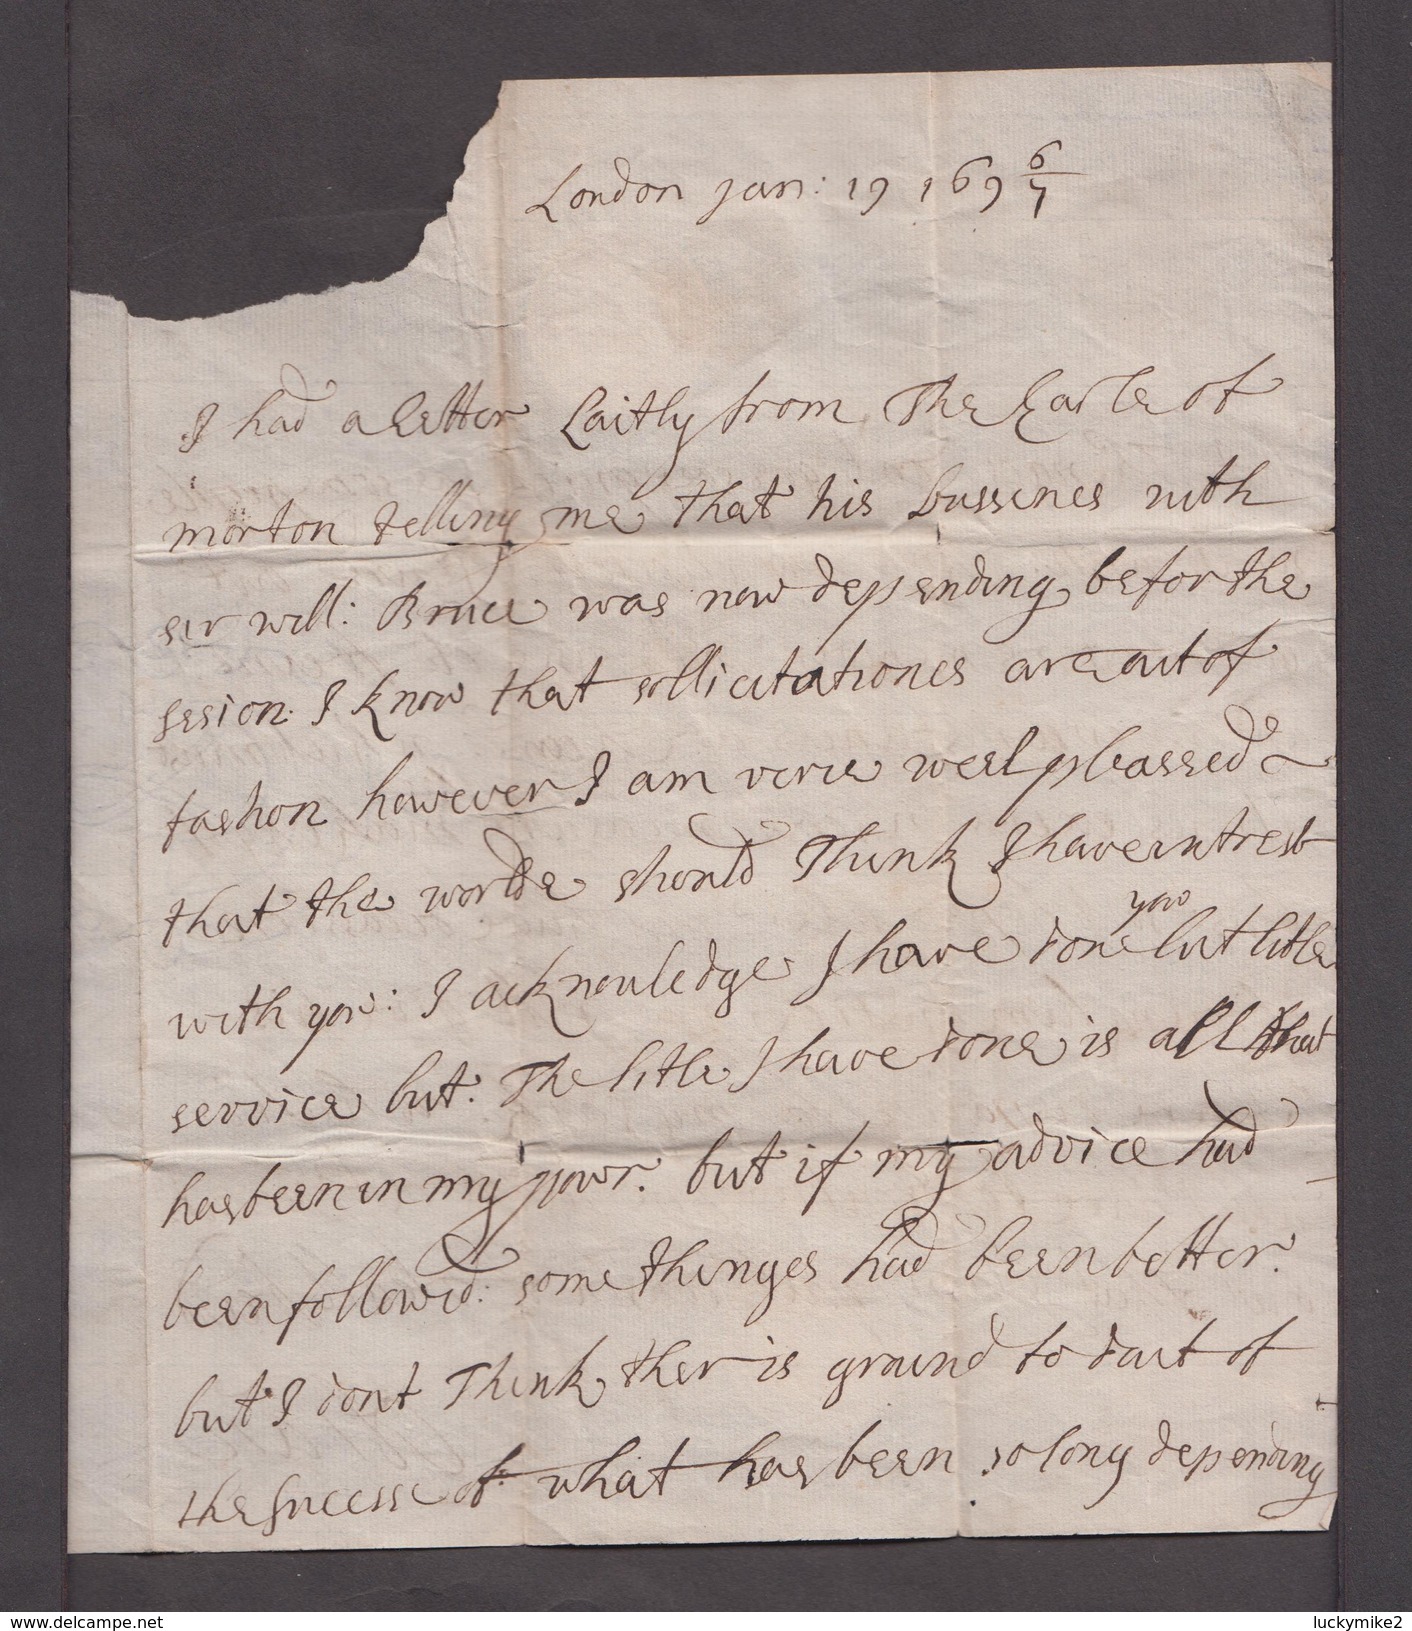 London Jan: 19 169 6/7
I had a letter Laitly from The Earle of
morton telling me that his bussines with
sir will: Bruce was now depending befor the
sesion: I know that sollicitationes are out of
fashon however I am verie weel pleassed
that the worlde should Think I have intrest
with yow: I acknouledge I have done yow but litle
service but: The litle I have done is all that
has been in my powr. but if my advice had
been followed: some thinges had been better.
but I dont Think ther is ground to dout of
the successe of what has been so long depending
www.delcampe.net
luckymike2